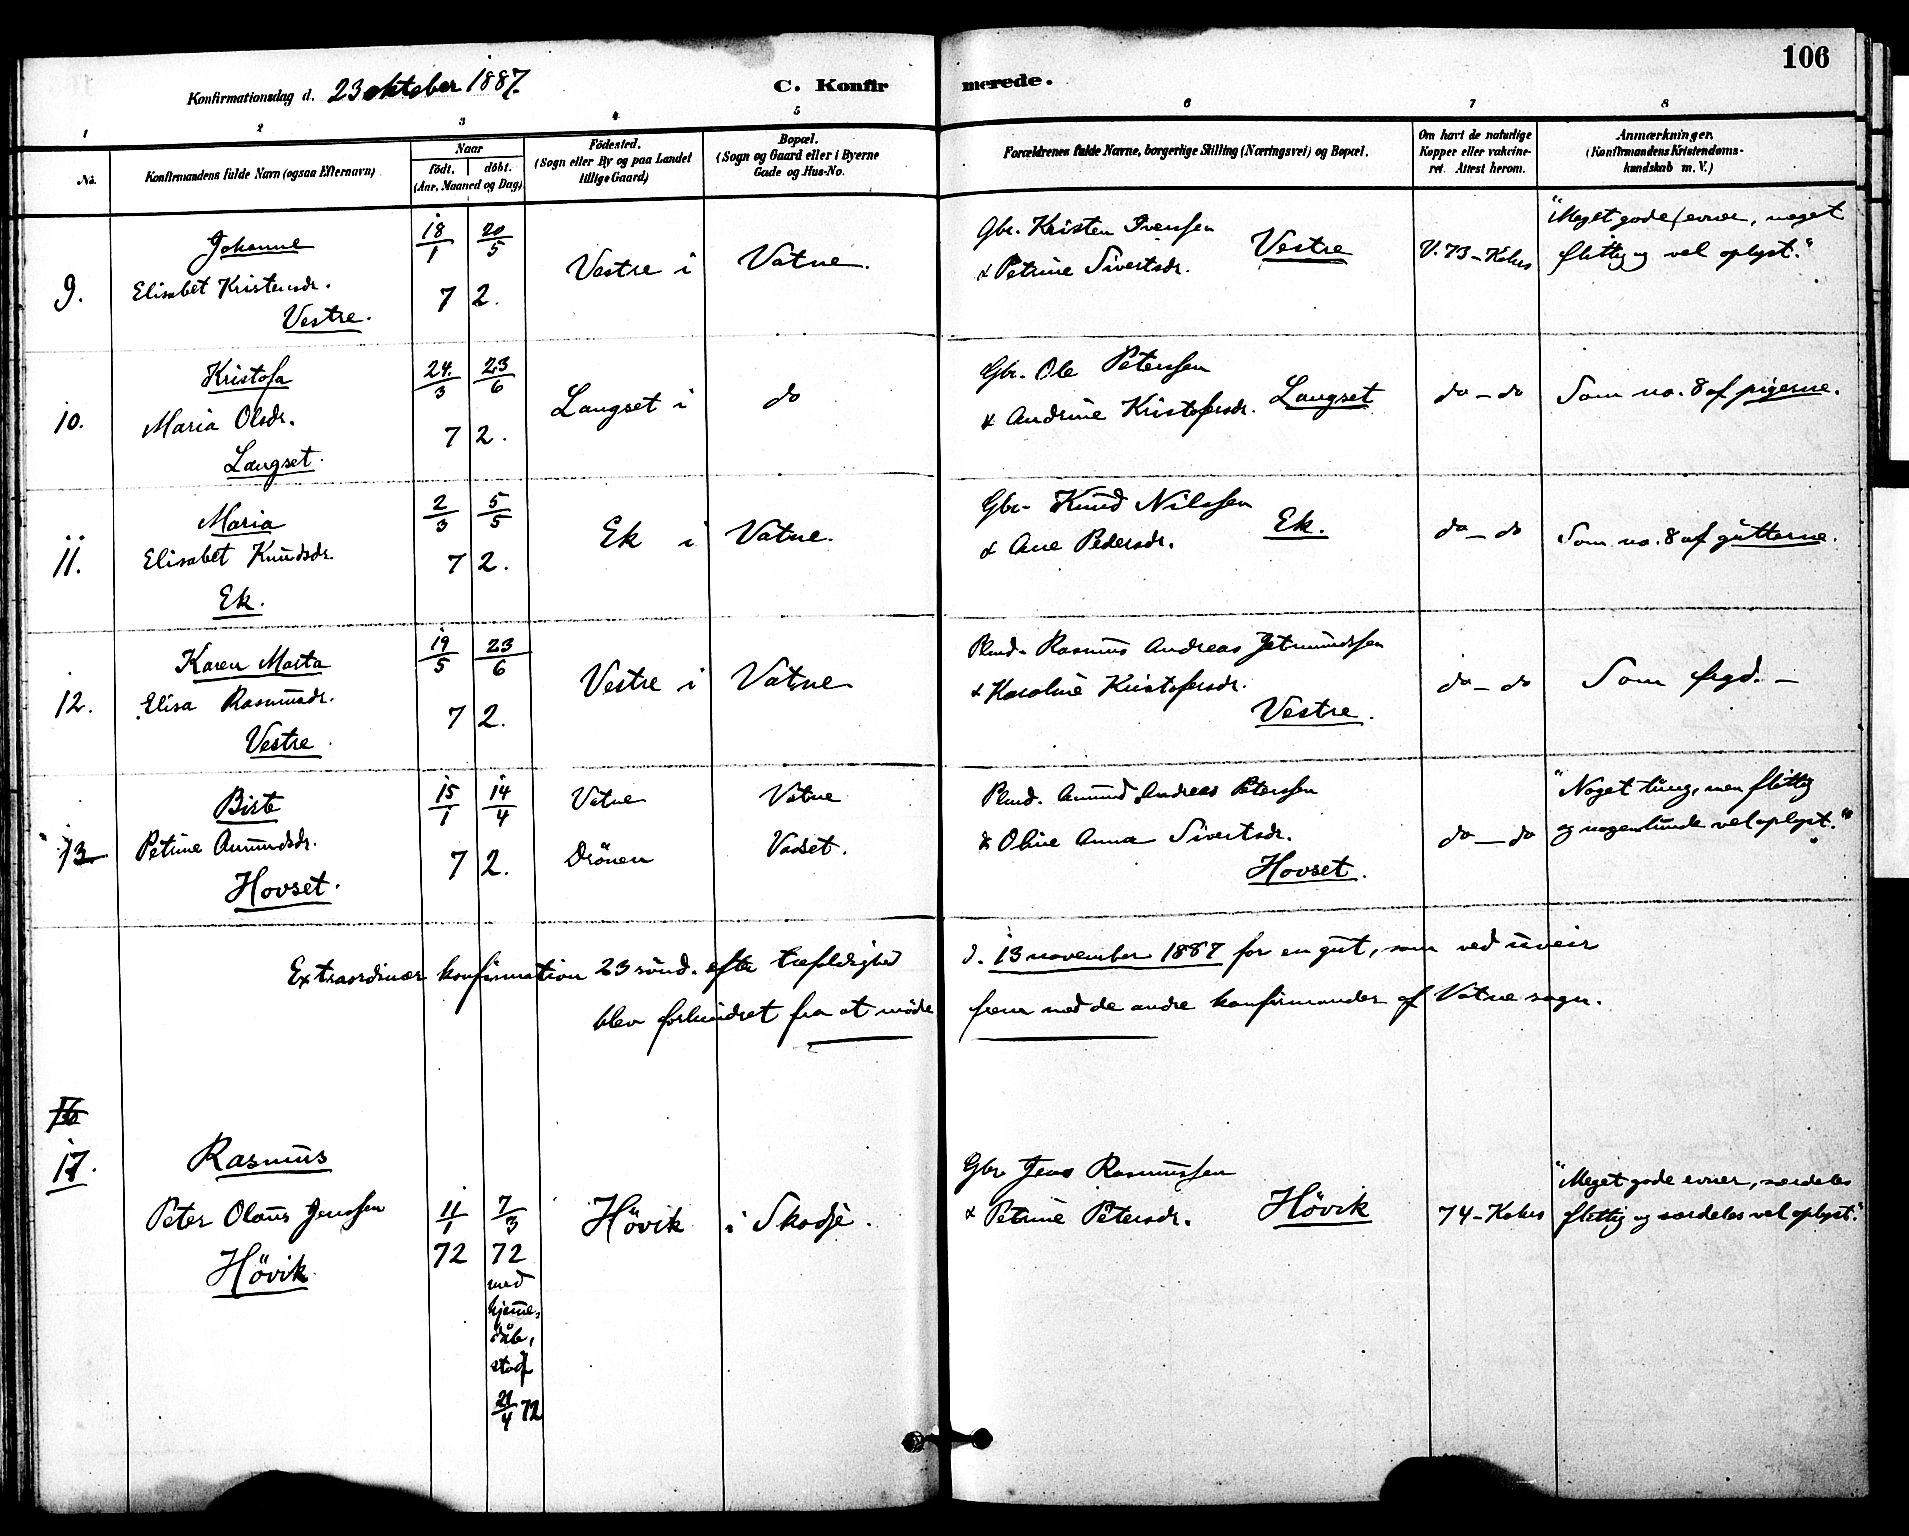 106
Konfirmationsdag d. 23 oktober 1887.
C. Konfirmerede.
1 2 3 4 5 6 7 8
No.
Konfirmandens fulde Navn (ogsaa Efternavn)
Naar
födt. döbt.
(Aar, Maaned og Dag)
Födested.
(Sogn eller By og paa Landet
tillige Gaard)
Bopæl.
(Sogn og Gaard eller i Byerne
Gade og Hus-No.
Forældrenes fulde Navne, borgerlige Stilling (Næringsvei) og Bopæl.
Om havt de naturlige
Kopper eller vakcine-
ret. Attest herom.
Anmærkninger.
(Konfirmandens Kristendoms-
kundskab m. V.)
9.
Johanne
Elisabet Kristensdr.
Vestre.
18/1 20/5
7 2.
Vestre i Vatne.
Gbr. Kristen Iversen
& Petrine Sivertsdr.
Vestre
V. 73 - Kobro
"Meget gode evner, noget
flittig og vel oplyst."
10.
Kristofa
Maria Olsdr.
Langset.
24/3 23/6
7 2.
Langset i do
Gbr. Ole Peterssen
& Andrine Kristofersdr. Langset
do - do
Som no. 8 af pigerne.
11.
Maria
Elisabet Knudsdr.
Ek.
2/3 5/5
7 2.
Ek i Vatne.
Gbr. Knud Nilssen
& Ane Pedersdr.
Ek.
do - do
Som no. 8 af gutterne.
12.
Karen Marta
Elisa Rasmusdr.
Vestre.
19/5 23/6
7 2.
Vestre i Vatne
Plmd. Rasmus Andreas Jetmundssen
& Karoline Kristofersdr.
Vestre.
do - do
Som frgd. -
13
Birte
Petrine Amundsdr.
Hovset.
15/1 14/4
7 2.
Vatne
Drönen
Vatne
Vadset.
Plmd. Amund Andreas Peterssen
& Oline Anna Sivertsdr.
Hovset.
do - do
"Noget tung, men flittig
og nogenlunde vel oplyst."
Extraordinær konfirmation 23 sönd. efter trefoldighed d. 13 november 1887 for en gut, som ved uveir
blev forhindret fra at möde frem med de andre konfirmander af Vatne sogn.
17.
Rasmus
Peter Olaus Jenssen
Hövik
11/1 7/3
72 72
med
hjemme-
dåb,
stadf
21/4 72
Hövik i Skodje.
Gbr. Jens Rasmussen
& Petrine Petersdr.
Hövik
74 - Kobro
"Meget gode evner, særdeles
flittig og særdeles vel oplyst."